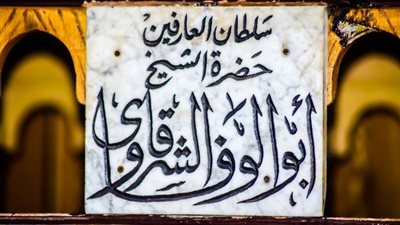 سلطان العارفين
حضرة الشيخ
أبو الوفا الشرقاوى